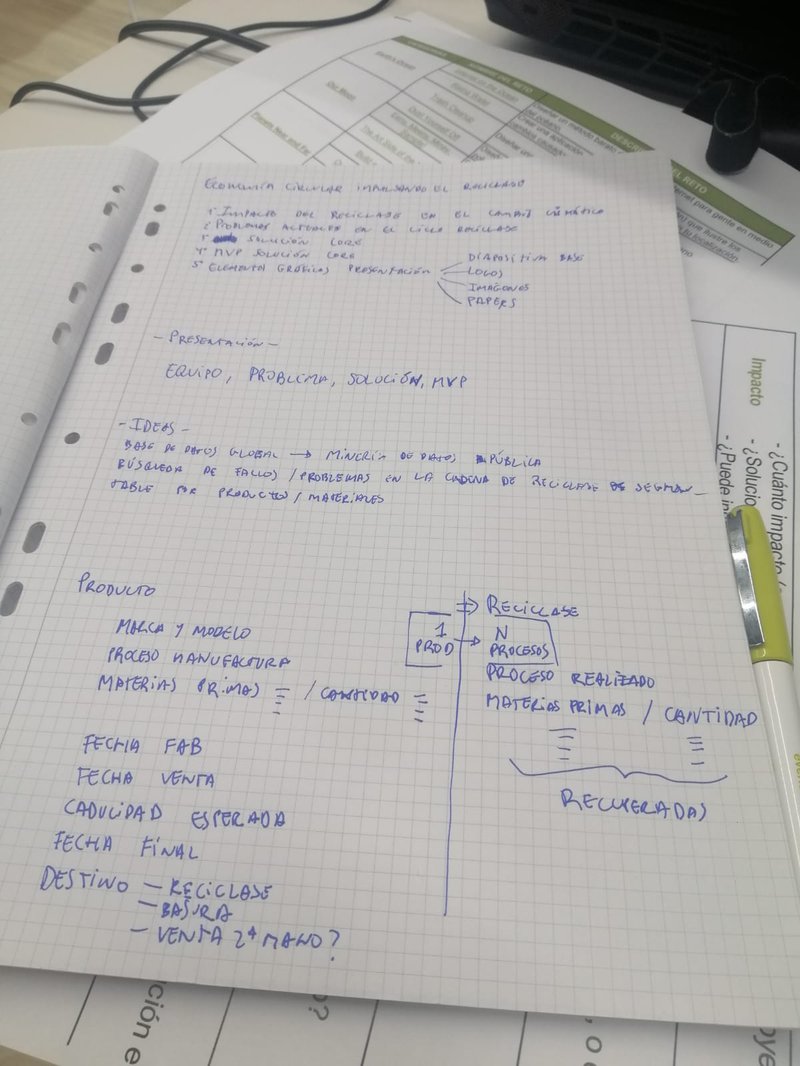 NOMBRE DEL RETO
DEL RETO
Economía circular impulsando el reciclado
1º Impacto del reciclase en el cambio climático
2º Problemas actuales en el ciclo reciclase
3º Solución core
4º MVP solución core
5º Elementos gráficos presentación
Diapositiva base
Logos
Imágenes
Papers
- Presentación -
Equipo, problema, solución, MVP
- Ideas -
Base de datos global → minería de datos pública
Búsqueda de fallos / problemas en la cadena de reciclase segmen-
table por productos / materiales
Producto
Marca y modelo
Proceso manufactura
Materias primas / cantidad
Fecha fab
Fecha venta
Caducidad esperada
Fecha final
Destino - Reciclase
- Basura
- Venta 2ª mano?
1 PROD → N PROCESOS
⇒ Reciclase
Proceso realizado
Materias primas / cantidad
Recuperadas
Impacto
- ¿Cuánto impacto
- ¿Solucio
- ¿Puede in